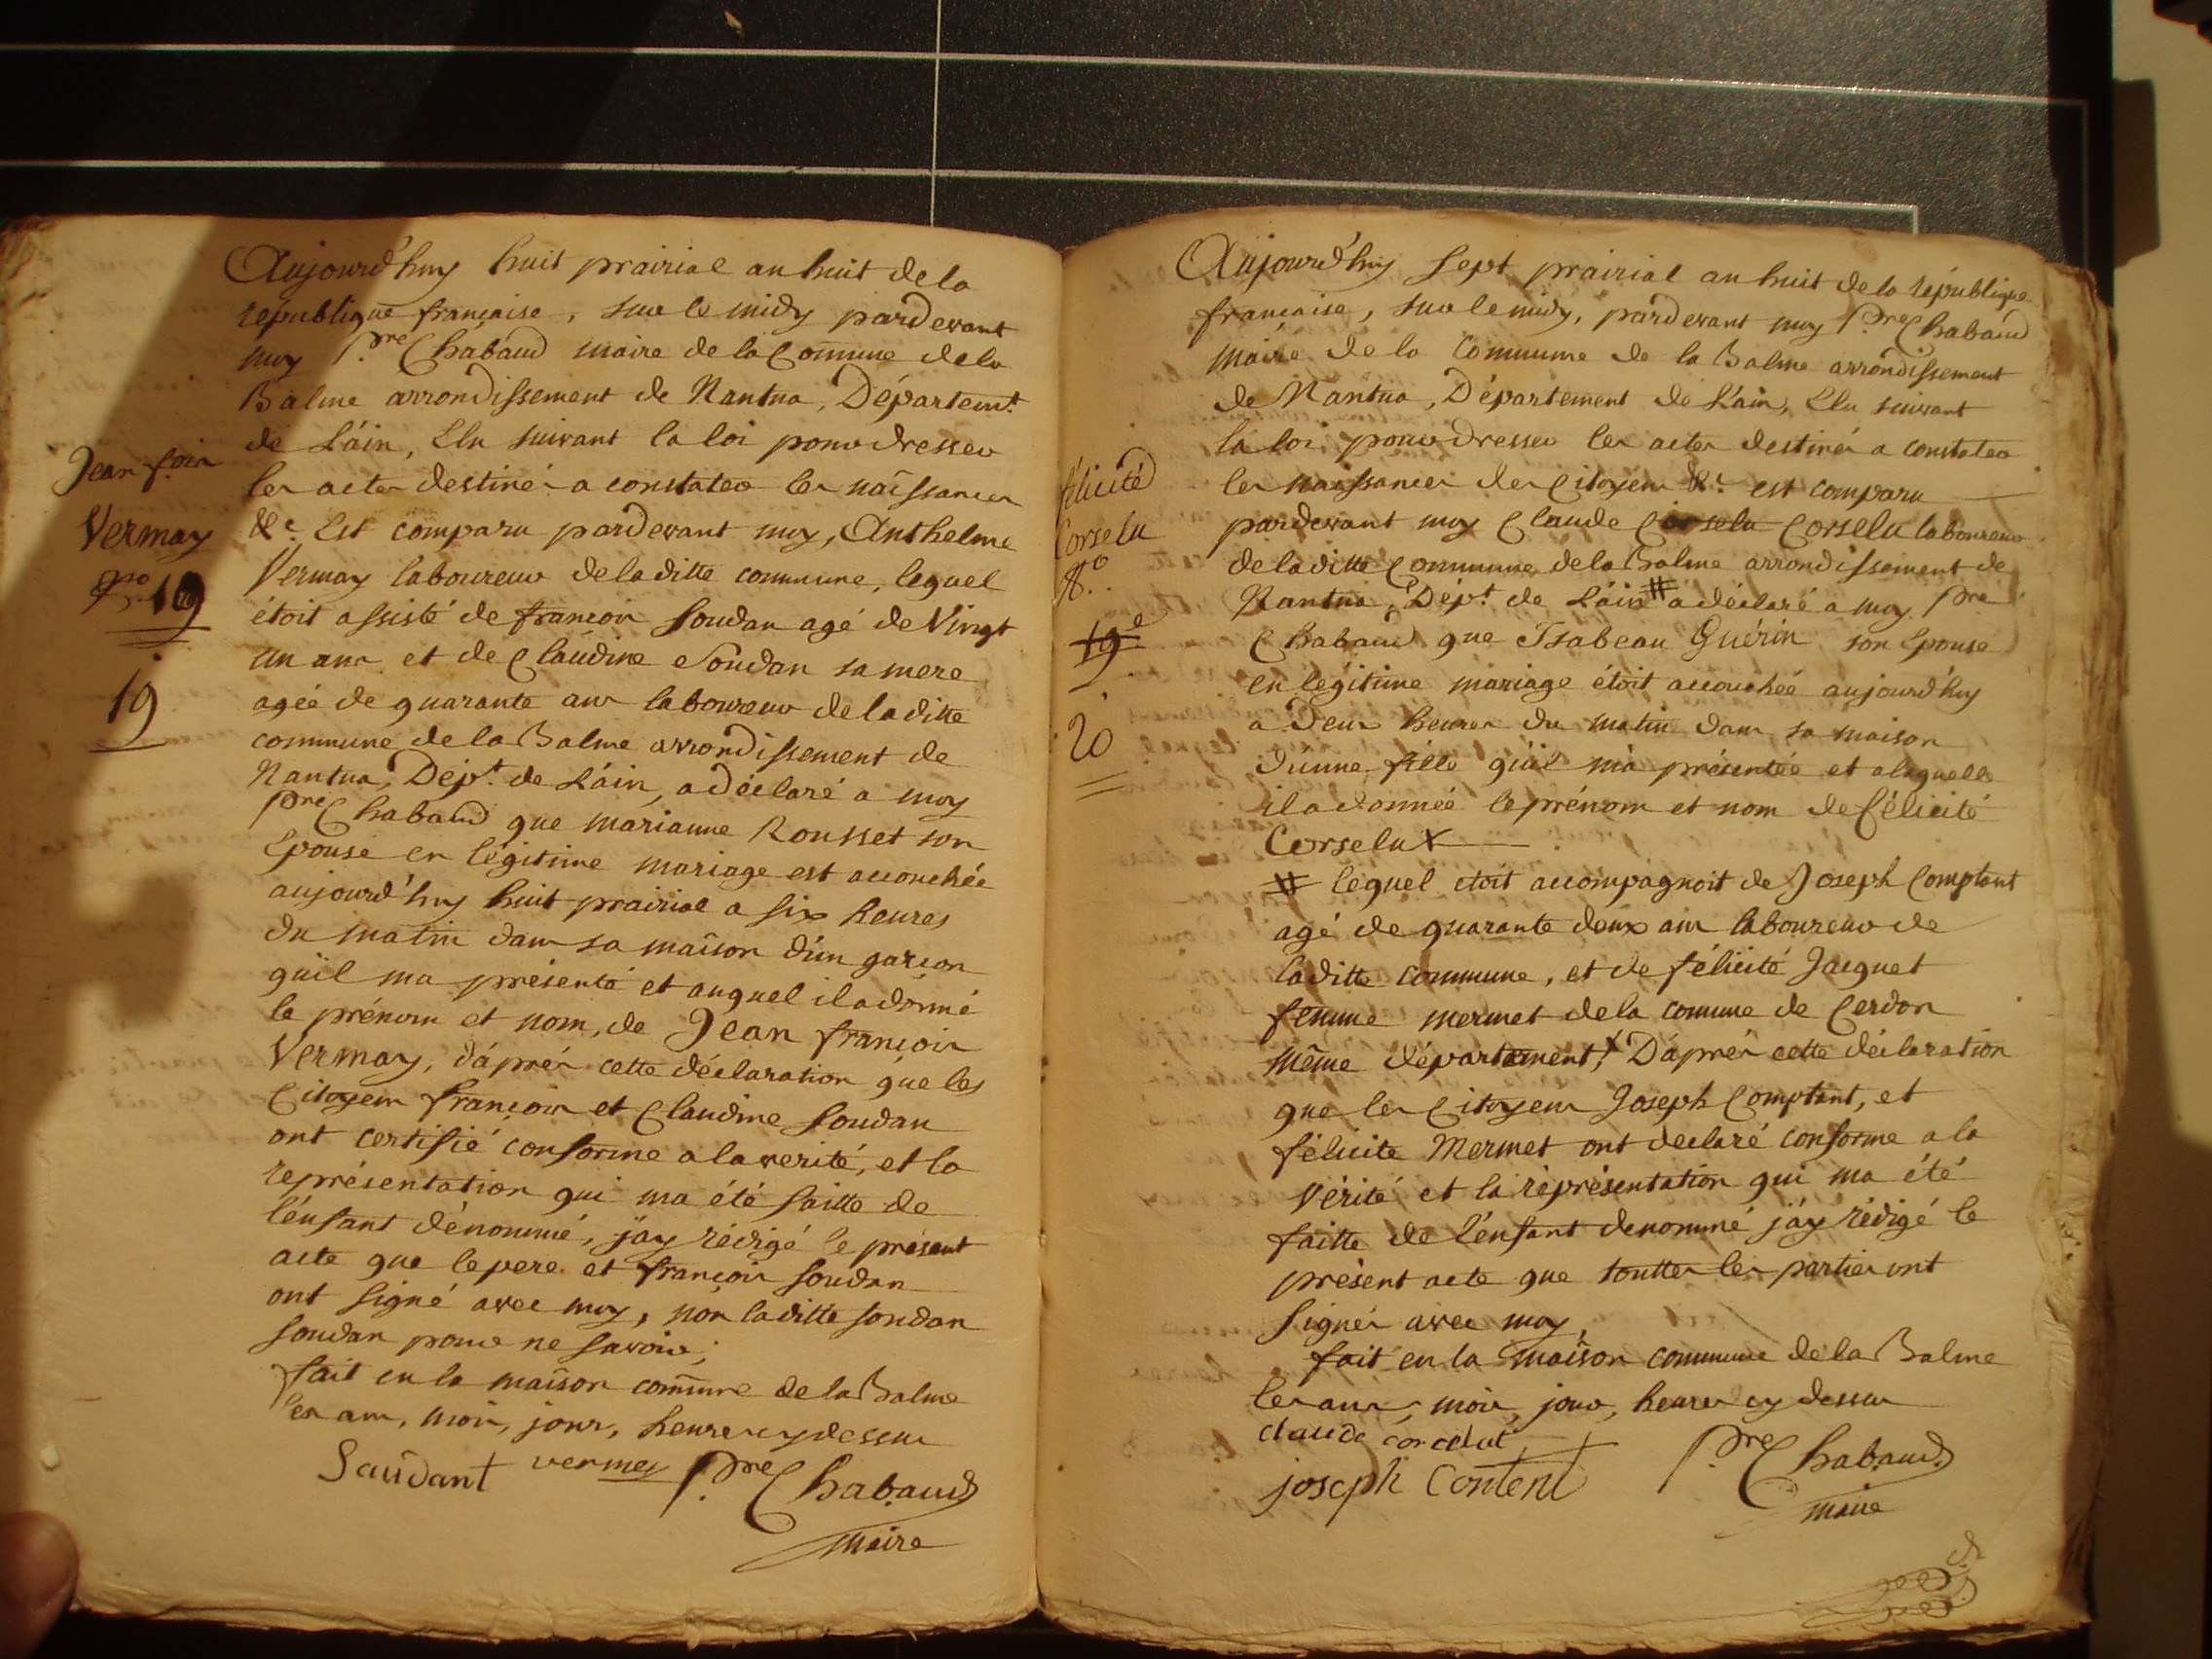 Aujourd'huy huit prairial an huit de la
république française, sur le midy pardevant
moy Pre Chabaud maire de la Comune de la
Balme arrondissement de Nantua, Départemt.
de L'ain, Elu suivant la loi pour dresser
les actes destinés a constater les naissances
&c. Est comparu pardevant moy, Anthelme
Vermay laboureur de laditte commune, lequel
étoit assisté de françois Soudan agé de Vingt
un ans et de Claudine Soudan sa mere
agée de quarante ans laboureur de laditte
commune de la Balme arrondissement de
Nantua, Dépt. de L'ain, a déclaré a moy
Pre Chabaud que marianne Rousset son
Epouse en légitime mariage est accouchée
aujourd'huy huit prairial a six heures
du matin dans sa maison d'un garcon
qu'il ma présenté et auquel il a donné
le prénom et nom, de Jean françois
Vermay, d'aprés cette déclaration que les
Citoyens françois et Claudine Soudan
ont certifié conforme a la verité, et la
représentation qui ma été faitte de
l'enfant dénommé, j'ay rédigé le présent
acte que le pere et françois Soudan
ont signé avec moy, non laditte soudan
soudan pour ne savoir,
fait en la maison comune de la Balme
les ans, mois, jour, heures cy dessus
Saudant vermey Pre Chabaud
maire
Jean fois
Vermay
19
19
Aujourd'huy sept prairial an huit de la république
française, sur le midy, pardevant moy Pre Chabaud
maire de la Commune de la Balme arrondissement
de Nantua, Département de L'ain, Elu suivant
la loi pour dresser les actes destinés a constater
les naissances des Citoyens &c. est comparu
pardevant moy Claude Corselu Corselu laboureur
de laditte Commune de la Balme arrondissement de
Nantua, Dépt. de L'ain # a déclaré a moy Pre
Chabaud que Isabeau Guérin son Epouse
en légitime mariage étoit accouchée aujourd'huy
a deux heures du matin dans sa maison
d'unne fille qu'il m'a présentée et alaquelle
il a donnée le prénom et nom de félicité
Corselu X
# lequel etoit accompagnoit de Joseph Comptant
agé de quarante deux ans laboureur de
laditte commune, et de félicité Jacquet
femme mermet de la comune de Cerdon
même département, X D'aprés cette déclaration
que les Citoyens Joseph Comptant, et
félicite Mermet ont declaré conforme a la
Vérité et la réprésentation qui ma été
faitte de l'enfant denommé j'ay rédigé le
présent acte que touttes les parties ont
signés avec moy,
fait en la maison commune de la Balme
les ans, mois, jour, heures cy dessus
claude corcelut
joseph Content Pre Chabaud
maire
félicité
Corselu
8.o
19e
20